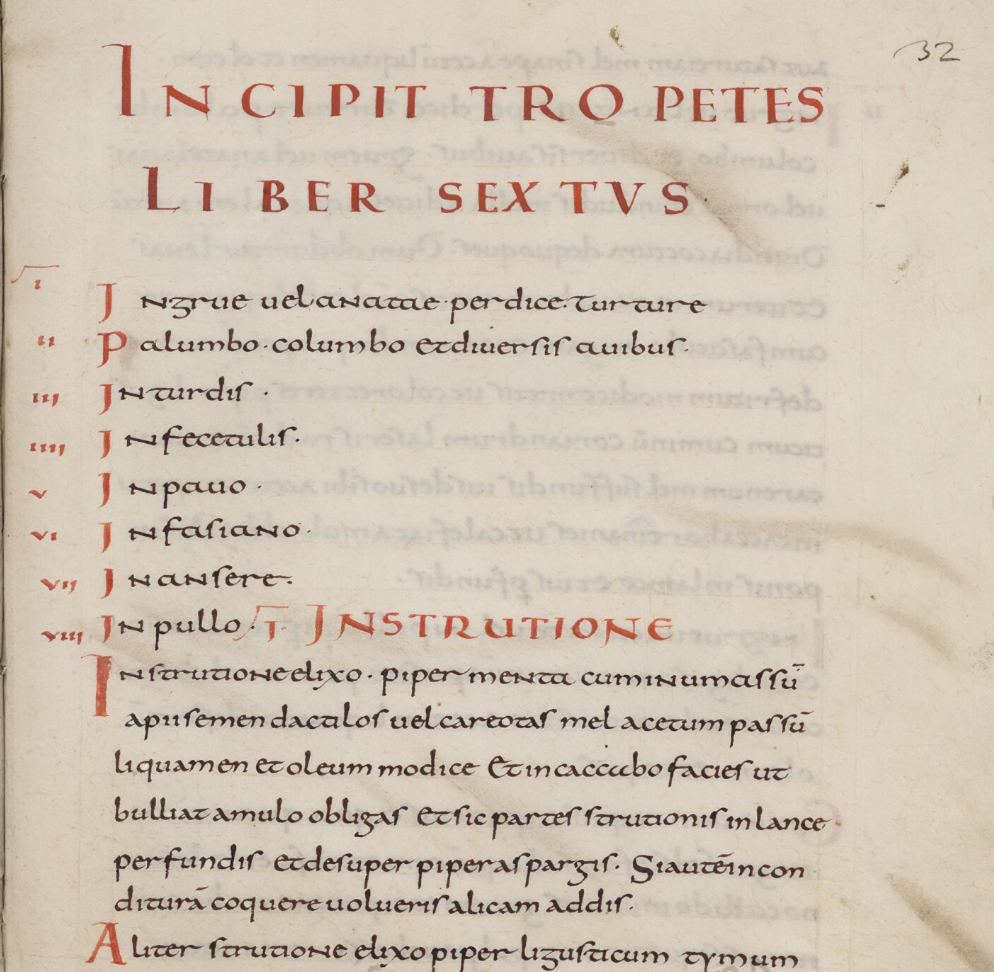 32
INCIPIT TROPETES
LIBER SEXTVS
ı I ngrue uel anatae · perdice · turture
ıı Palumbo · columbo et diuersis auibus ·
ııı In turdis ·
ıııı In fecetulis ·
v In pauo ·
vı In fasiano ·
vıı In ansere ·
vııı In pullo · ī INSTRUTIONE
In strutione elixo · piper menta cuminum assū
apii semen dactilos uel careotas mel acetum passū
liquamen et oleum modice Et in caccabo facies ut
bulliat amulo obligas Et sic partes strutionis in lance
perfundis et desuper piper aspargis · Si autē in con
diturā coquere uolueris alicam addis ·
Aliter strutione elixo piper ligusticum tymum